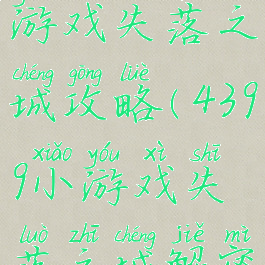 游戏失落之
chéng gōng lüè
城攻略(439
xiǎo yóu xì shī
9小游戏失
luò zhī chéng jiě mì
落之城解密